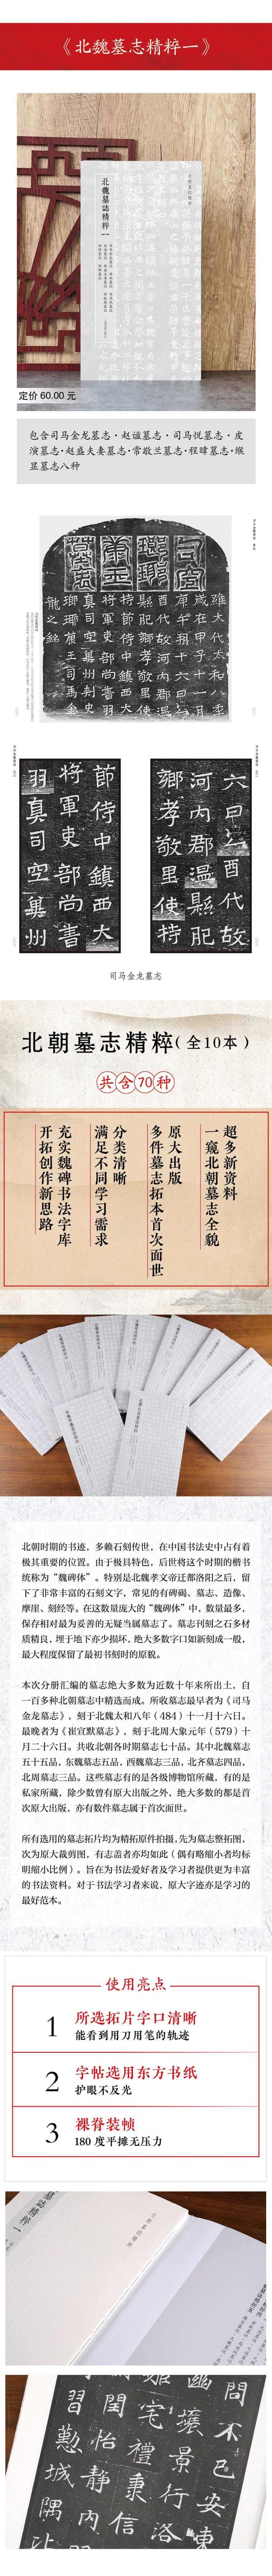 《北魏墓志精粹一》
北魏墓誌精粹一
定价 60.00 元
包含司马金龙墓志·赵谧墓志·司马悦墓志·皮
演墓志·赵盛夫妻墓志·常敬兰墓志·程暐墓志·缑
显墓志八种
司空
琅琊
康王
墓銘
維大代太和八年
歲在甲子十一月
庚午朔十六日乙
酉代故河内郡温
縣肥鄉孝敬里使
持節侍中鎮西大
將軍吏部尚書羽
真司空冀州刺史
琅琊康王司馬金
龍之銘
六日乙酉代故
河内郡温縣肥
鄉孝敬里使持
節侍中鎮西大
將軍吏部尚書
羽真司空冀州
司马金龙墓志
北朝墓志精粹(全10本)
共含70种
超多新资料
一窥北朝墓志全貌
原大出版
多件墓志拓本首次面世
分类清晰
满足不同学习需求
充实魏碑书法字库
开拓创作新思路
北朝时期的书迹，多赖石刻传世，在中国书法史中占有着
极其重要的位置。由于极具特色，后世将这个时期的楷书
统称为“魏碑体”。特别是北魏孝文帝迁都洛阳之后，留
下了非常丰富的石刻文字，常见的有碑碣、墓志、造像、
摩崖、刻经等。在这数量庞大的“魏碑体”中，数量最多，
保存相对最为妥善的无疑当属墓志了。墓志刊刻之石多材
质精良，埋于地下亦少损坏，绝大多数字口如新刻成一般，
最大程度保留了最初书刻时的原貌。
本次分册汇编的墓志绝大多数为近数十年来所出土，自
一百多种北朝墓志中精选而成。所收墓志最早者为《司马
金龙墓志》，刻于北魏太和八年（484）十一月十六日。
最晚者为《崔宣默墓志》，刻于北周大象元年（579）十
月二十六日。共收北朝各时期墓志七十品。其中北魏墓志
五十五品，东魏墓志五品，西魏墓志三品，北齐墓志四品，
北周墓志三品。这些墓志有的是各级博物馆所藏，有的是
私家所藏，除少数曾有原大出版之外，绝大多数的都是首
次原大出版，亦有数件墓志属于首次面世。
所有选用的墓志拓片均为精拓原件拍摄，先为墓志整拓图，
次为原大裁剪图，有志盖者亦均如此（偶有略缩小者均标
明缩小比例）。旨在为书法爱好者及学习者提供更为丰富
的书法资料。对于书法学习者来说，原大字迹亦是学习的
最好范本。
使用亮点
1
所选拓片字口清晰
能看到用刀用笔的轨迹
2
字帖选用东方书纸
护眼不反光
3
裸脊装帧
180 度平摊无压力
問不已安東
壤景行洛
宅禮秉信
閏怡靜内
習懃城隅